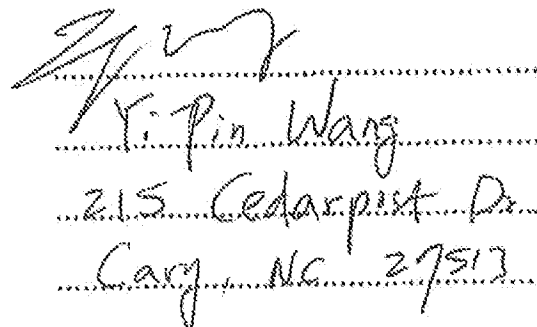 Yi Pin Wang
215 Cedarpost Dr
Cary, NC 27513